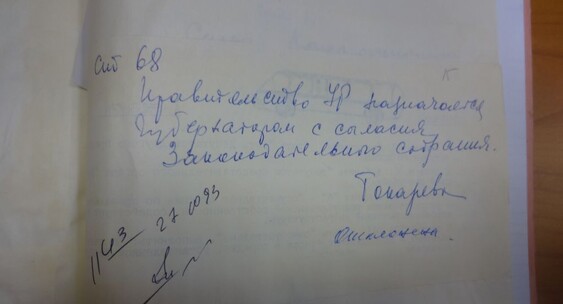 Ст 68
Правительство УР назначается
Губернатором с согласия
Законодательного собрания.
Токарева
отклонена.
1143 27 10 93